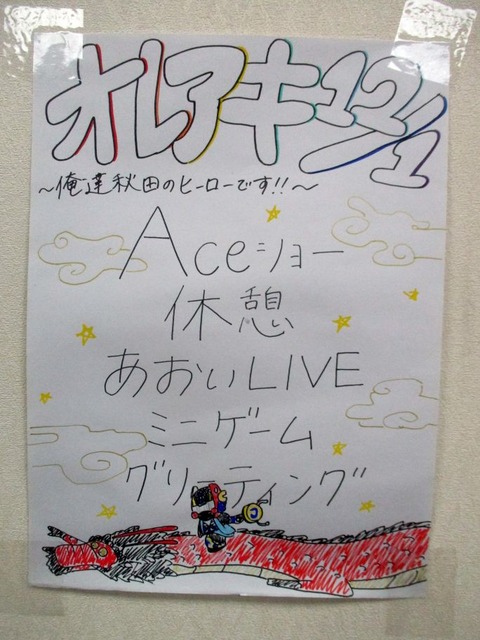 オレアキ12/1
～俺達秋田のヒーローです!!～
Aceショー
休憩
あおいLIVE
ミニゲーム
グリーティング